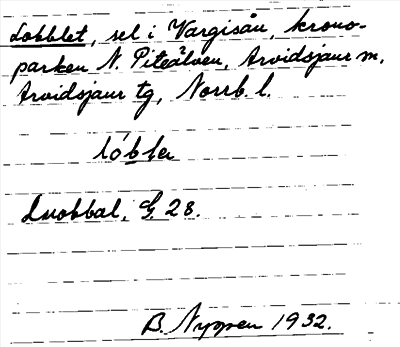 Lobblet, sel i Vargisån, krono-
parken N. Piteälven, Arvidsjaur m,
Arvidsjaur tg, Norrb. l.
lób̲la
Luobbal, G. 28.
B. Nyppen 1932.